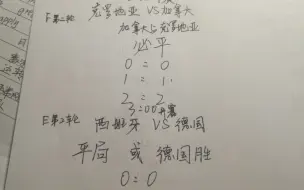 F第二轮 克罗地亚 VS 加拿大
加拿大与克罗地亚
必平
0 = 0
1 = 1
2 = 2
3:00开赛
E第二轮 西班牙 VS 德国
平局 或 德国胜
0:0